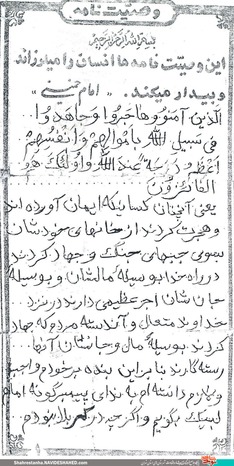 وصیت نامه
بسم الله الرحمن الرحیم
این وصیت نامه ها انسان را میلرزاند
و بیدار میکند. "امام خمینی"
الذین آمنوا و هاجروا و جاهدوا...
فی سبیل الله باموالهم و انفسهم
اعظم درجة عند الله و اولئک هم
الفائزون
یعنی آنچنان کسانیکه ایمان آورده اند
و هجرت کردند از خانهای خودشان
بسوی جبهای جنگ و جهاد کردند
در راه خدا بوسیله مالشان و بوسیله
جان شان اجر عظیمی دارند در نزد...
خداوند متعال و آندسته مردم که جهاد
کردند بوسیله مال و جانشان آنها...
رستگارند بنابراین بنده بر خود واجب
و لازم دانسته ام به ندای پیمبرگونه امام
لبیک بگویم و اگر چه در کربلا نبودم
Shahrestanha.NAVIDESHAHED.com